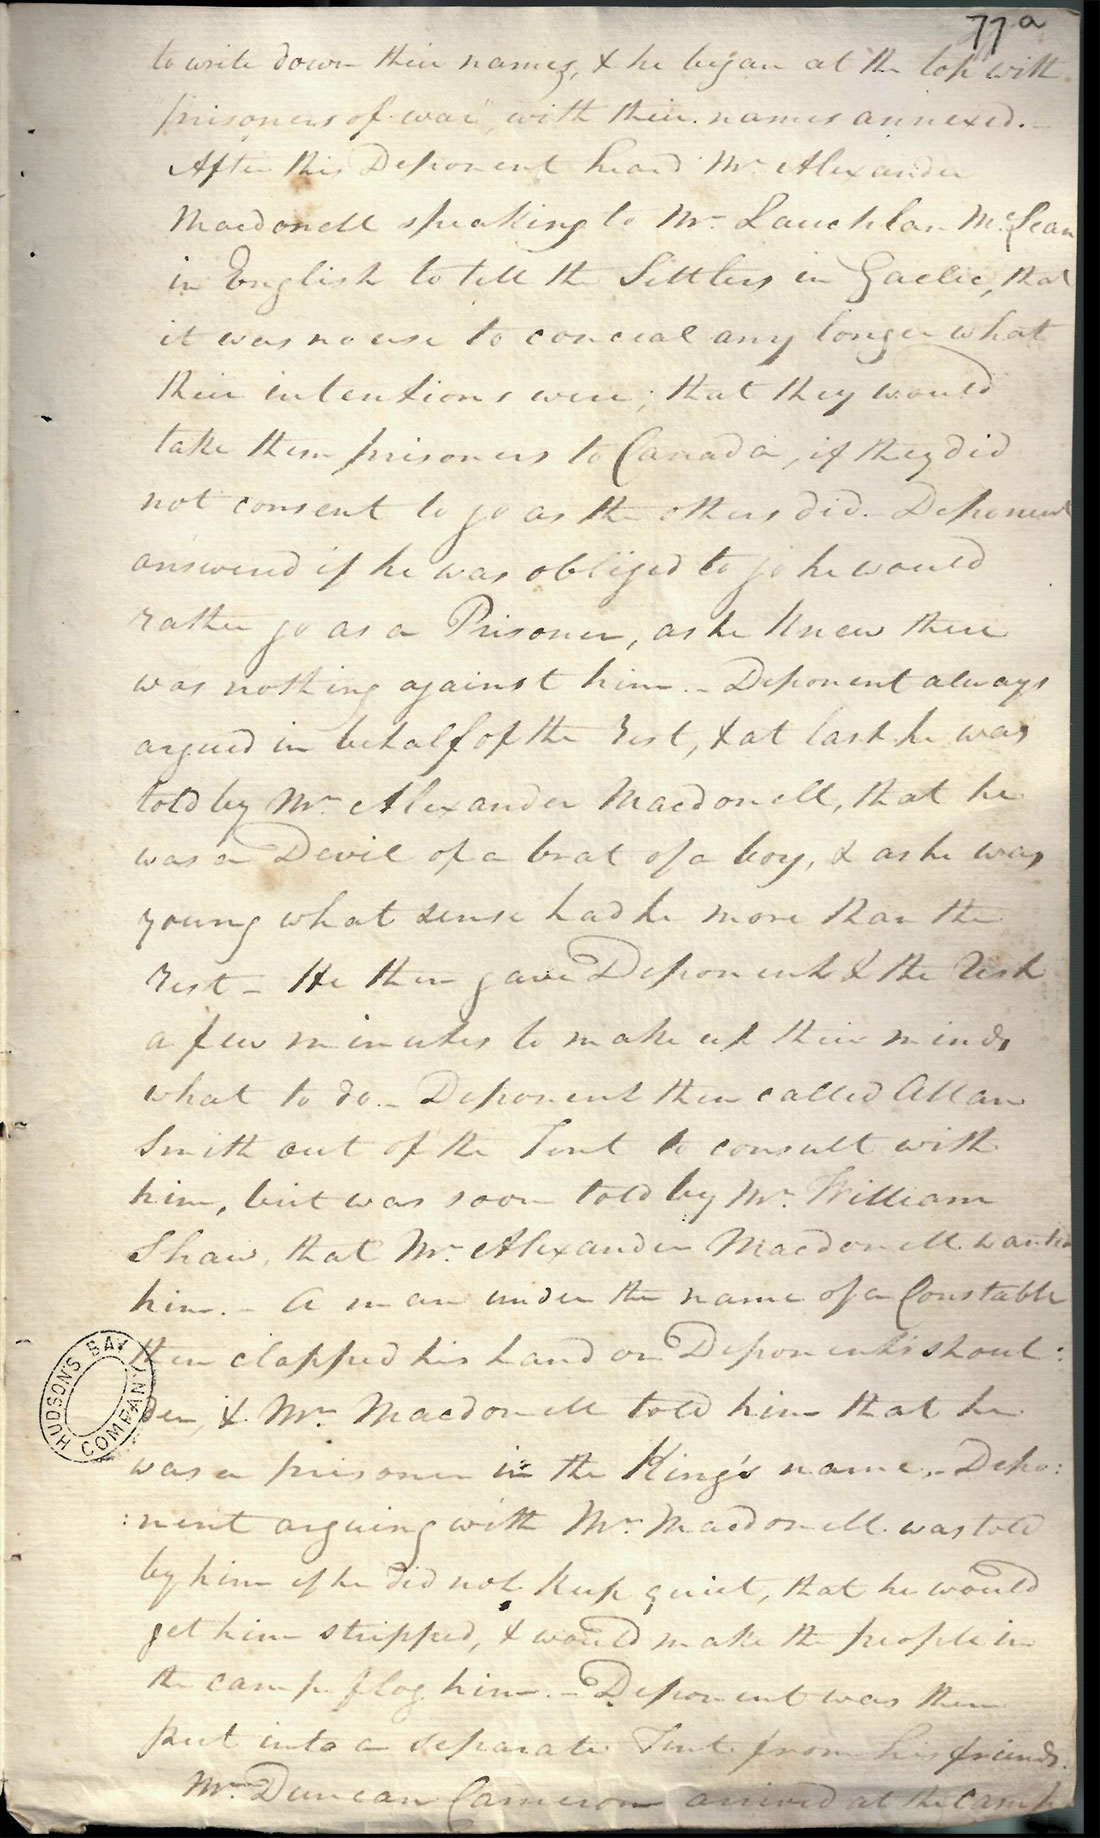 77a
to write down their names, & he began at the top with
"prisoners of war", with their names annexed.-
After this Deponent heard Mr Alexander
Macdonell speaking to Mr Lauchlan McLean
in English to tell the Settlers in Gaelic, that
it was no use to conceal any longer what
their intentions were; that they would
take them prisoners to Canada, if they did
not consent to go as the others did.- Deponent
answered if he was obliged to go he would
rather go as a Prisoner, as he knew there
was nothing against him.- Deponent always
argued in behalf of the rest, & at last he was
told by Mr Alexander Macdonell, that he
was a Devil of a brat of a boy, & as he was
young what sense had he more than the
rest - He then gave Deponent & the rest
a few minutes to make up their minds
what to do.- Deponent then called Allan
Smith out of the Tent to consult with
him, but was soon told by Mr William
Shaw, that Mr Alexander Macdonell wanted
him.- A man under the name of a Constable
then clapped his hand on Deponent's shoul:
der, & Mr Macdonell told him that he
was a prisoner in the King's name.- Depo:
:nent arguing with Mr Macdonell was told
by him if he did not keep quiet, that he would
get him stripped, & would make the people in
the camp flog him.- Deponent was then
put into a separate Tent from his friends.
Mr Duncan Cameron arrived at the Camp
HUDSON'S BAY COMPANY